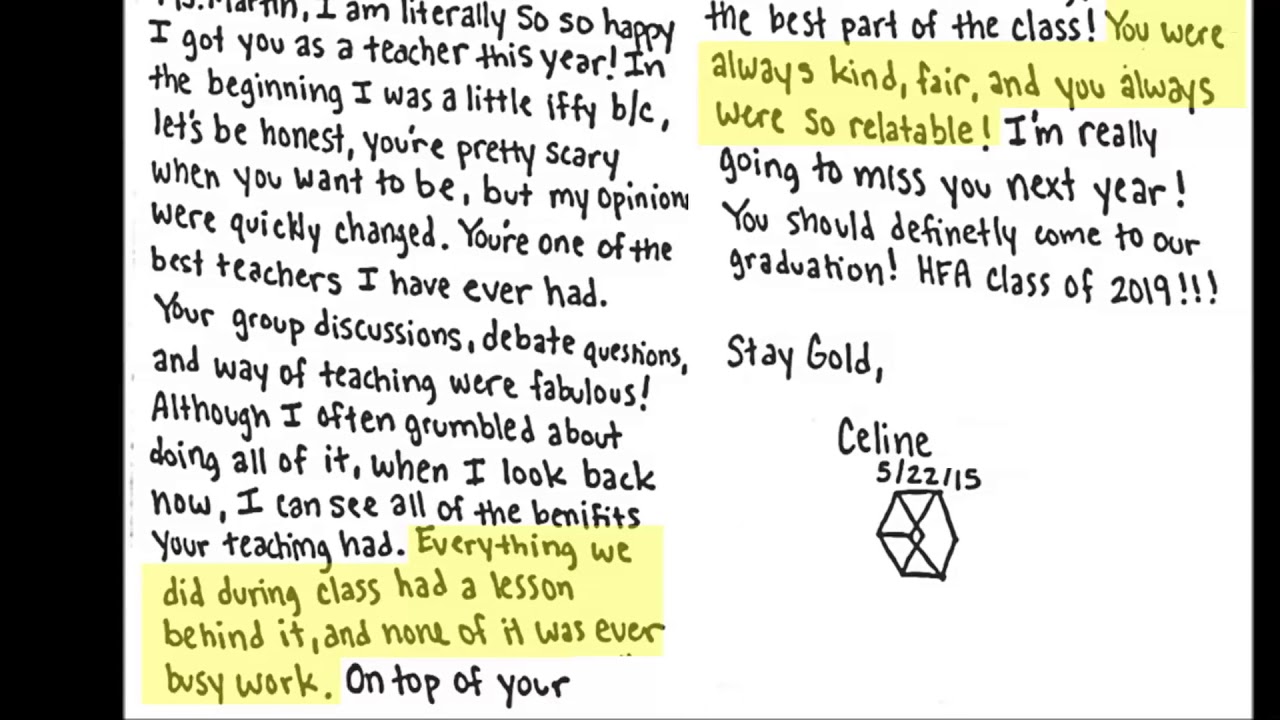 Ms. Martin, I am literally so so happy
I got you as a teacher this year! In
the beginning I was a little iffy b/c,
let's be honest, you're pretty scary
when you want to be, but my opinion
were quickly changed. You're one of the
best teachers I have ever had.
Your group discussions, debate questions,
and way of teaching were fabulous!
Although I often grumbled about
doing all of it, when I look back
now, I can see all of the benifits
your teaching had. Everything we
did during class had a lesson
behind it, and none of it was ever
busy work. On top of your
the best part of the class! You were
always kind, fair, and you always
were so relatable! I'm really
going to miss you next year!
You should definetly come to our
graduation! HFA Class of 2019!!!
Stay Gold,
Celine
5/22/15